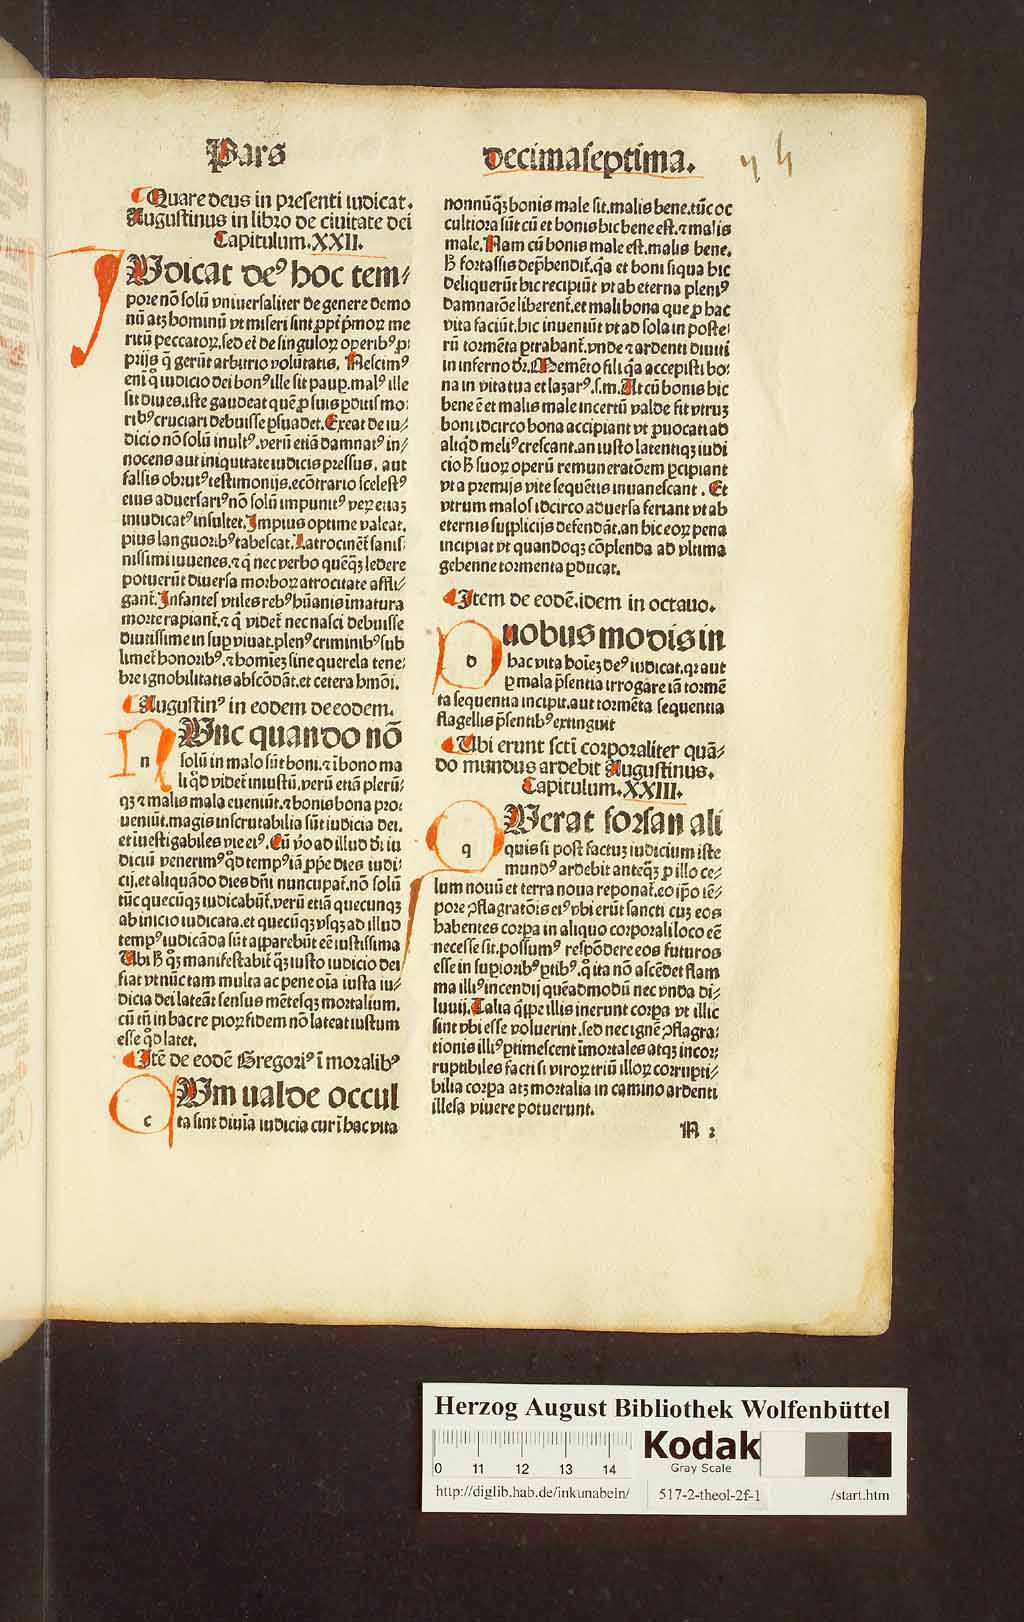 Pars
decimaseptima.
Quare deus in presenti iudicat.
Augustinus in libro de ciuitate dei
Capitulum.XXII.
IUdicat deꝰ hoc tem⸗
pore nõ solũ vniuersaliter de genere demo
nũ atꝫ hominũ vt miseri sint ꝓpt̃ p̃moꝝ me
ritũ peccatoꝝ.sed et̃ de singuloꝝ operibꝰ ꝓ⸗
prijs q̃ gerũt arbitrio volũtatis. Nescimꝰ
eni q̊ iudicio dei bonꝰ ille sit paup̱.malꝰ ille
sit diues.iste gaudeat quẽ ꝓ suis p̱ditis mo⸗
ribꝰ cruciari debuisse p̱suadet.Exeat de iu⸗
dicio nõ solũ inultꝰ.verũ etiã damnatꝰ in⸗
nocens aut iniquitate iudicis pressus. aut
falsis obrutꝰ testimonijs.ecõtrario scelestꝰ
eius aduersariꝰ nõ solũ impunitꝰ veꝝ etiaꝫ
iniudicatꝰ insultet.Impius optime valeat.
pius languoribꝰ tabescat.Latrocinẽt sanis⸗
nissimi iuuenes.⁊ q̇ nec verbo quẽqꝫ ledere
potuerũt diuersa morboꝝ atrocitate affli⸗
gant̃.Infantes vtiles rebꝰ hũanis ĩmatura
morte rapiant̃.⁊ q̇ vident̃ nec nasci debuisse
diutissime in sup̱ viuat.plenꝰ criminibꝰ sub
limet̃ honoribꝰ.⁊ homieꝫ sine querela tene⸗
bre ignobilitatis abscõdãt.et cetera hm̃oi.
Augustinꝰ in eodem de eodem.
n
NUnc quando nõ
solũ in malo sũt boni.⁊ ĩ bono ma
li qd̊ videt̃ iniustũ.verũ etiã plerũ⸗
qꝫ ⁊ malis mala eueniũt.⁊ bonis bona pro⸗
ueniũt.magis inscrutabilia sũt iudicia dei.
et ĩuestigabiles vie eiꝰ.Cũ v̊o ad illud di̇ iu
diciũ venerimꝰ qd̊ tempꝰ iã p̱pe dies iudi⸗
cij.et aliquãdo dies dñi nuncupat̃.nõ solũ
tũc quecũqꝫ iudicabũt̃.verũ etiã quecunqꝫ
ab inicio iudicata.et quecũqꝫ vsqꝫ ad illud
tempꝰ iudicãda sũt apparebũt eẽ iustissima
Ubi h̊ qꝫ manifestabit̃ qꝫ iusto iudicio dei
fiat vt nũc tam multa ac pene oĩa iusta iu⸗
dicia dei lateãt sensus mẽtesqꝫ mortalium.
cũ tñ in hac re pioꝝ fidem nõ lateat iustum
esse qd̊ latet.
Itẽ de eodẽ Gregoriꝰ ĩ moralibꝰ
c
CUm ualde occul
ta sint diuĩa iudicia cur ĩ hac vita
nonnũqꝫ bonis male sit.malis bene.tũc oc
cultiora sũt cũ et bonis hic bene est.⁊ malis
male.Nam cũ bonis male est.malis bene.
h̊ fortassis dep̱hendit̃.q̃a et boni siqua hic
deliquerũt hic recipiũt vt ab eterna pleniꝰ
damnatõe liberent̃.et mali bona que ꝓ hac
vita faciũt.hic inueniũt vt ad sola in poste⸗
rũ tormẽta p̱trabant̃.vnde ⁊ ardenti diuiti
in inferno dr̃.Memẽto fili q̃a accepisti bo⸗
na in vita tua et lazarꝰ.s.m.At cũ bonis hic
bene ẽ et malis male incertũ valde fit vtruꝫ
boni idcirco bona accipiant vt ꝓuocati ad
aliqd̊ meliꝰ crescant.an iusto latentiqꝫ iudi
cio h̊ suoꝝ operũ remuneratõem p̱cipiant
vt a premijs vite sequẽtis inuanescant. Et
vtrum malos idcirco aduersa feriant vt ab
eternis supplicijs defendãt.an hic eoꝝ pena
incipiat vt quandoqꝫ cõplenda ad vltima
gehenne tormenta p̱ducat.
Item de eodẽ.idem in octauo.
d
Duobus modis in
hac vita hoĩeꝫ deꝰ iudicat.qꝛ aut
p̱ mala p̃sentia irrogare iã tormẽ
ta sequentia incipit.aut tormẽta sequentia
flagellis p̃sentibꝰ extinguit
Ubi erunt scti corporaliter quã⸗
do mundus ardebit Augustinus.
Capitulum.XXIII.
q
QUerat forsan ali
quis si post factuꝫ iudicium iste
mundꝰ ardebit anteqꝫ ꝓ illo ce⸗
lum nouũ et terra noua reponat̃.eo ip̃o tẽ⸗
pore ꝯflagratõis eiꝰ vbi erũt sancti cuꝫ eos
habentes corpa in aliquo corporali loco eẽ
necesse sit.possumꝰ respõdere eos futuros
esse in sup̱ioribꝰ p̱tibꝰ.q̊ ita nõ ascẽdet flam
ma illiꝰ incendij quẽadmodũ nec vnda di⸗
luuij.Talia q̇ppe illis inerunt corpa vt illic
sint vbi esse voluerint.sed nec ignẽ ꝯflagra⸗
tionis illiꝰ p̱timescent ĩmortales atqꝫ incor⸗
ruptibiles facti si viroꝝ triũ illoꝝ corrupti⸗
bilia corpa atꝫ mortalia in camino ardenti
illesa viuere potuerunt.
N 2
Herzog August Bibliothek Wolfenbüttel
0 11 12 13 14
Kodak
Gray Scale
http://diglib.hab.de/inkunabeln/ 517-2-theol-2f-1 /start.htm